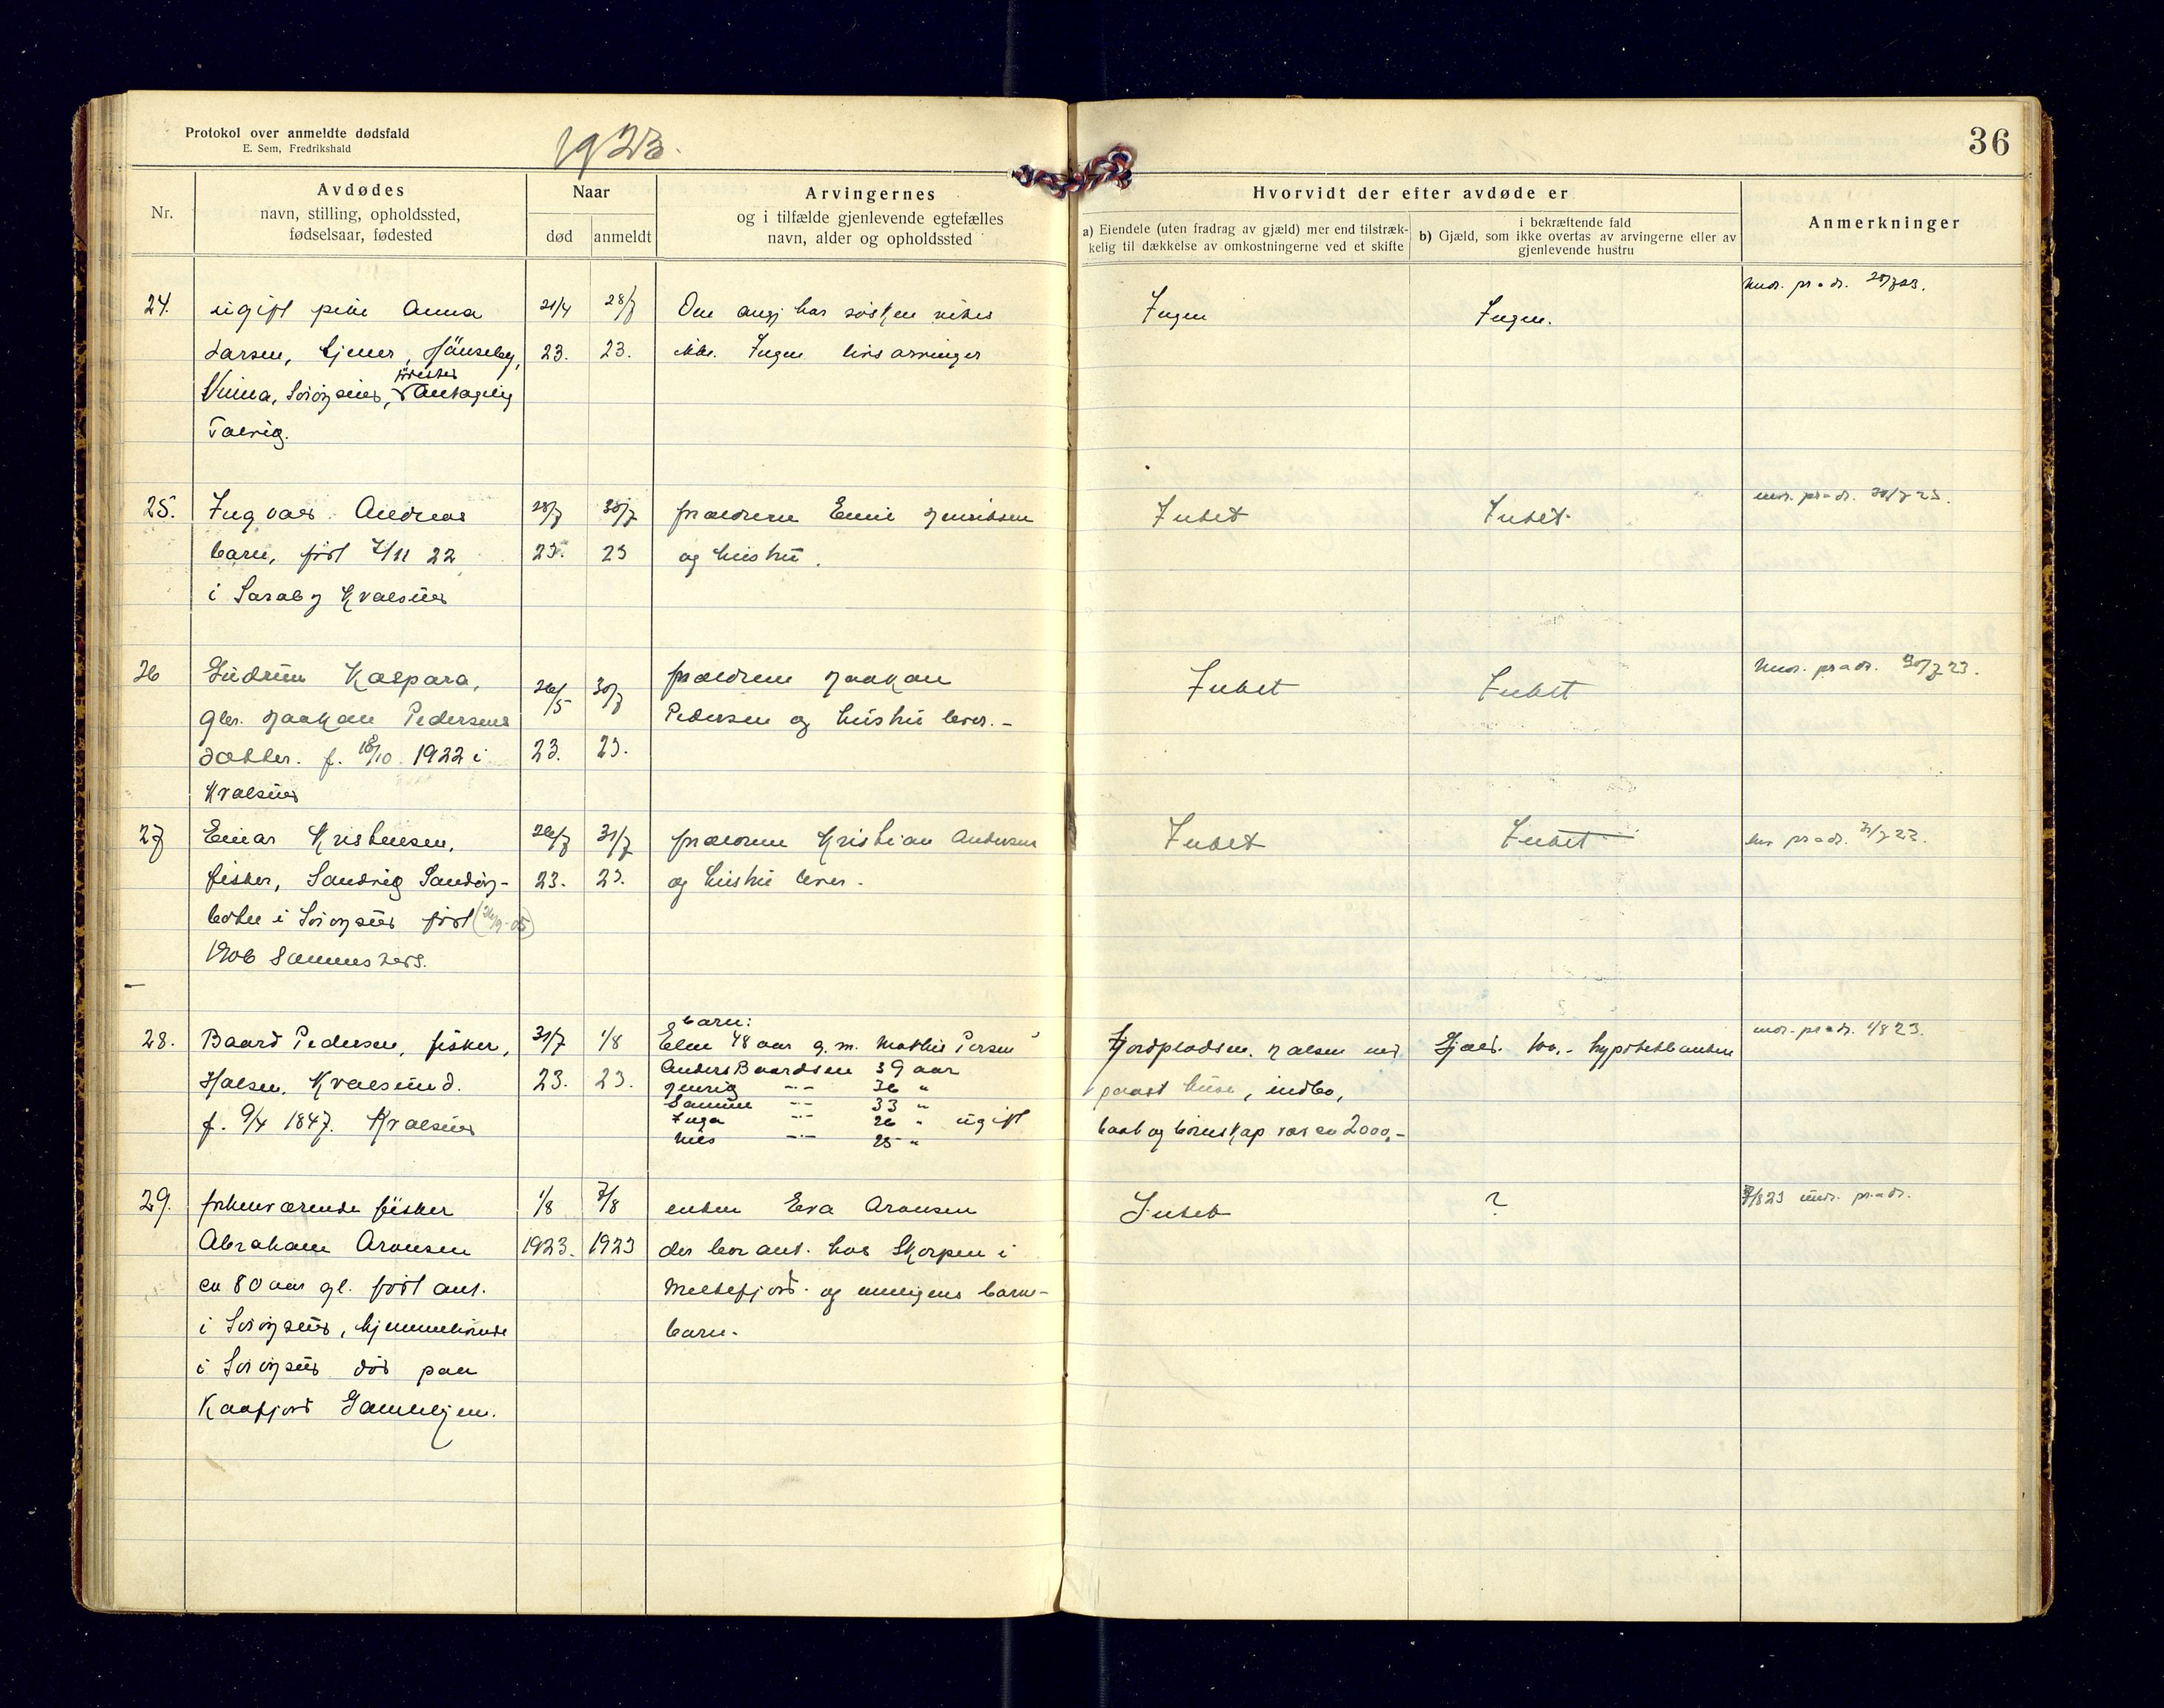 Protokol over anmeldte dødsfald
E. Sem, Fredrikshald
1923.
36
Nr.
Avdødes
navn, stilling, opholdssted,
fødselsaar, fødested
Naar
død
anmeldt
Arvingernes
og i tilfælde gjenlevende egtefælles
navn, alder og opholdssted
Hvorvidt der efter avdøde er
a) Eiendele (uten fradrag av gjæld) mer end tilstræk-
kelig til dækkelse av omkostningerne ved et skifte
i bekræftende fald
b) Gjæld, som ikke overtas av arvingerne eller av
gjenlevende hustru
Anmerkninger
24.
ugift pike Anna
Larsen, tjener, Hönseby,
fødested
Vinna, Sörøysund, Antagelig
Talvig.
21/4
23.
28/7
23.
Om angj. har søsken vites
ikke. Ingen livsarvinger
Ingen
Ingen.
undr. pr. dr. 28/7 23.
25.
Ingvald Andreas
barn, født 7/11 22
i Saraby Kvalsund
28/7
23.
30/7
23
forældrene Emil Henriksen
og hustru.
Intet
Intet
undr. pr. dr. 30/7 23.
26
Gudrun Kaspara,
gbr. Haakan Pedersens
datter. f. 18/10 1922 i
Kvalsund
26/5
23.
30/7
23.
forældrene Haakan
Pedersen og hustru lever. -
Intet
Intet
undr. pr. dr. 30/7 23.
27
Einar Kristensen,
fisker, Sandvig Sandøy-
botn i Sörøysund født
1906 sammesteds.
26/7
23.
31/7
23.
forældrene Kristian Andersen
og hustru lever.
Intet
Intet
pr. dr. 31/7 23.
28.
Baard Pedersen, fisker,
Halsen, Kvalsund.
f. 9/4 1847. Kvalsund
31/7
23.
1/8
23.
barn:
Elen 48 aar g. m. Mathis Persen
Anders Baardsen 39 aar
Henrig -"- 36 "
Samuel -"- 33 "
Inga -"- 26 " ugift
Nils -"- 25 "
Jordpladsen Halsen med
paast. huse, indbo,
baat og bruskap ca 2000,-
Gjæld 100,- hypotekbanken
undr. pr. dr. 1/8 23.
29.
forhenværende fisker
Abraham Aronsen
ca 80 aar gl. født ant.
i Sörøysund, hjemmehörende
i Sörøysund død paa
Kaafjord Gamlehjem.
1/8
1923.
7/8
1923
enken Eva Aronsen
der bor ant. hos Skorpen i
Meltefjord og muligens barne-
barn.
Intet
?
7/8 23 undr. pr. dr.